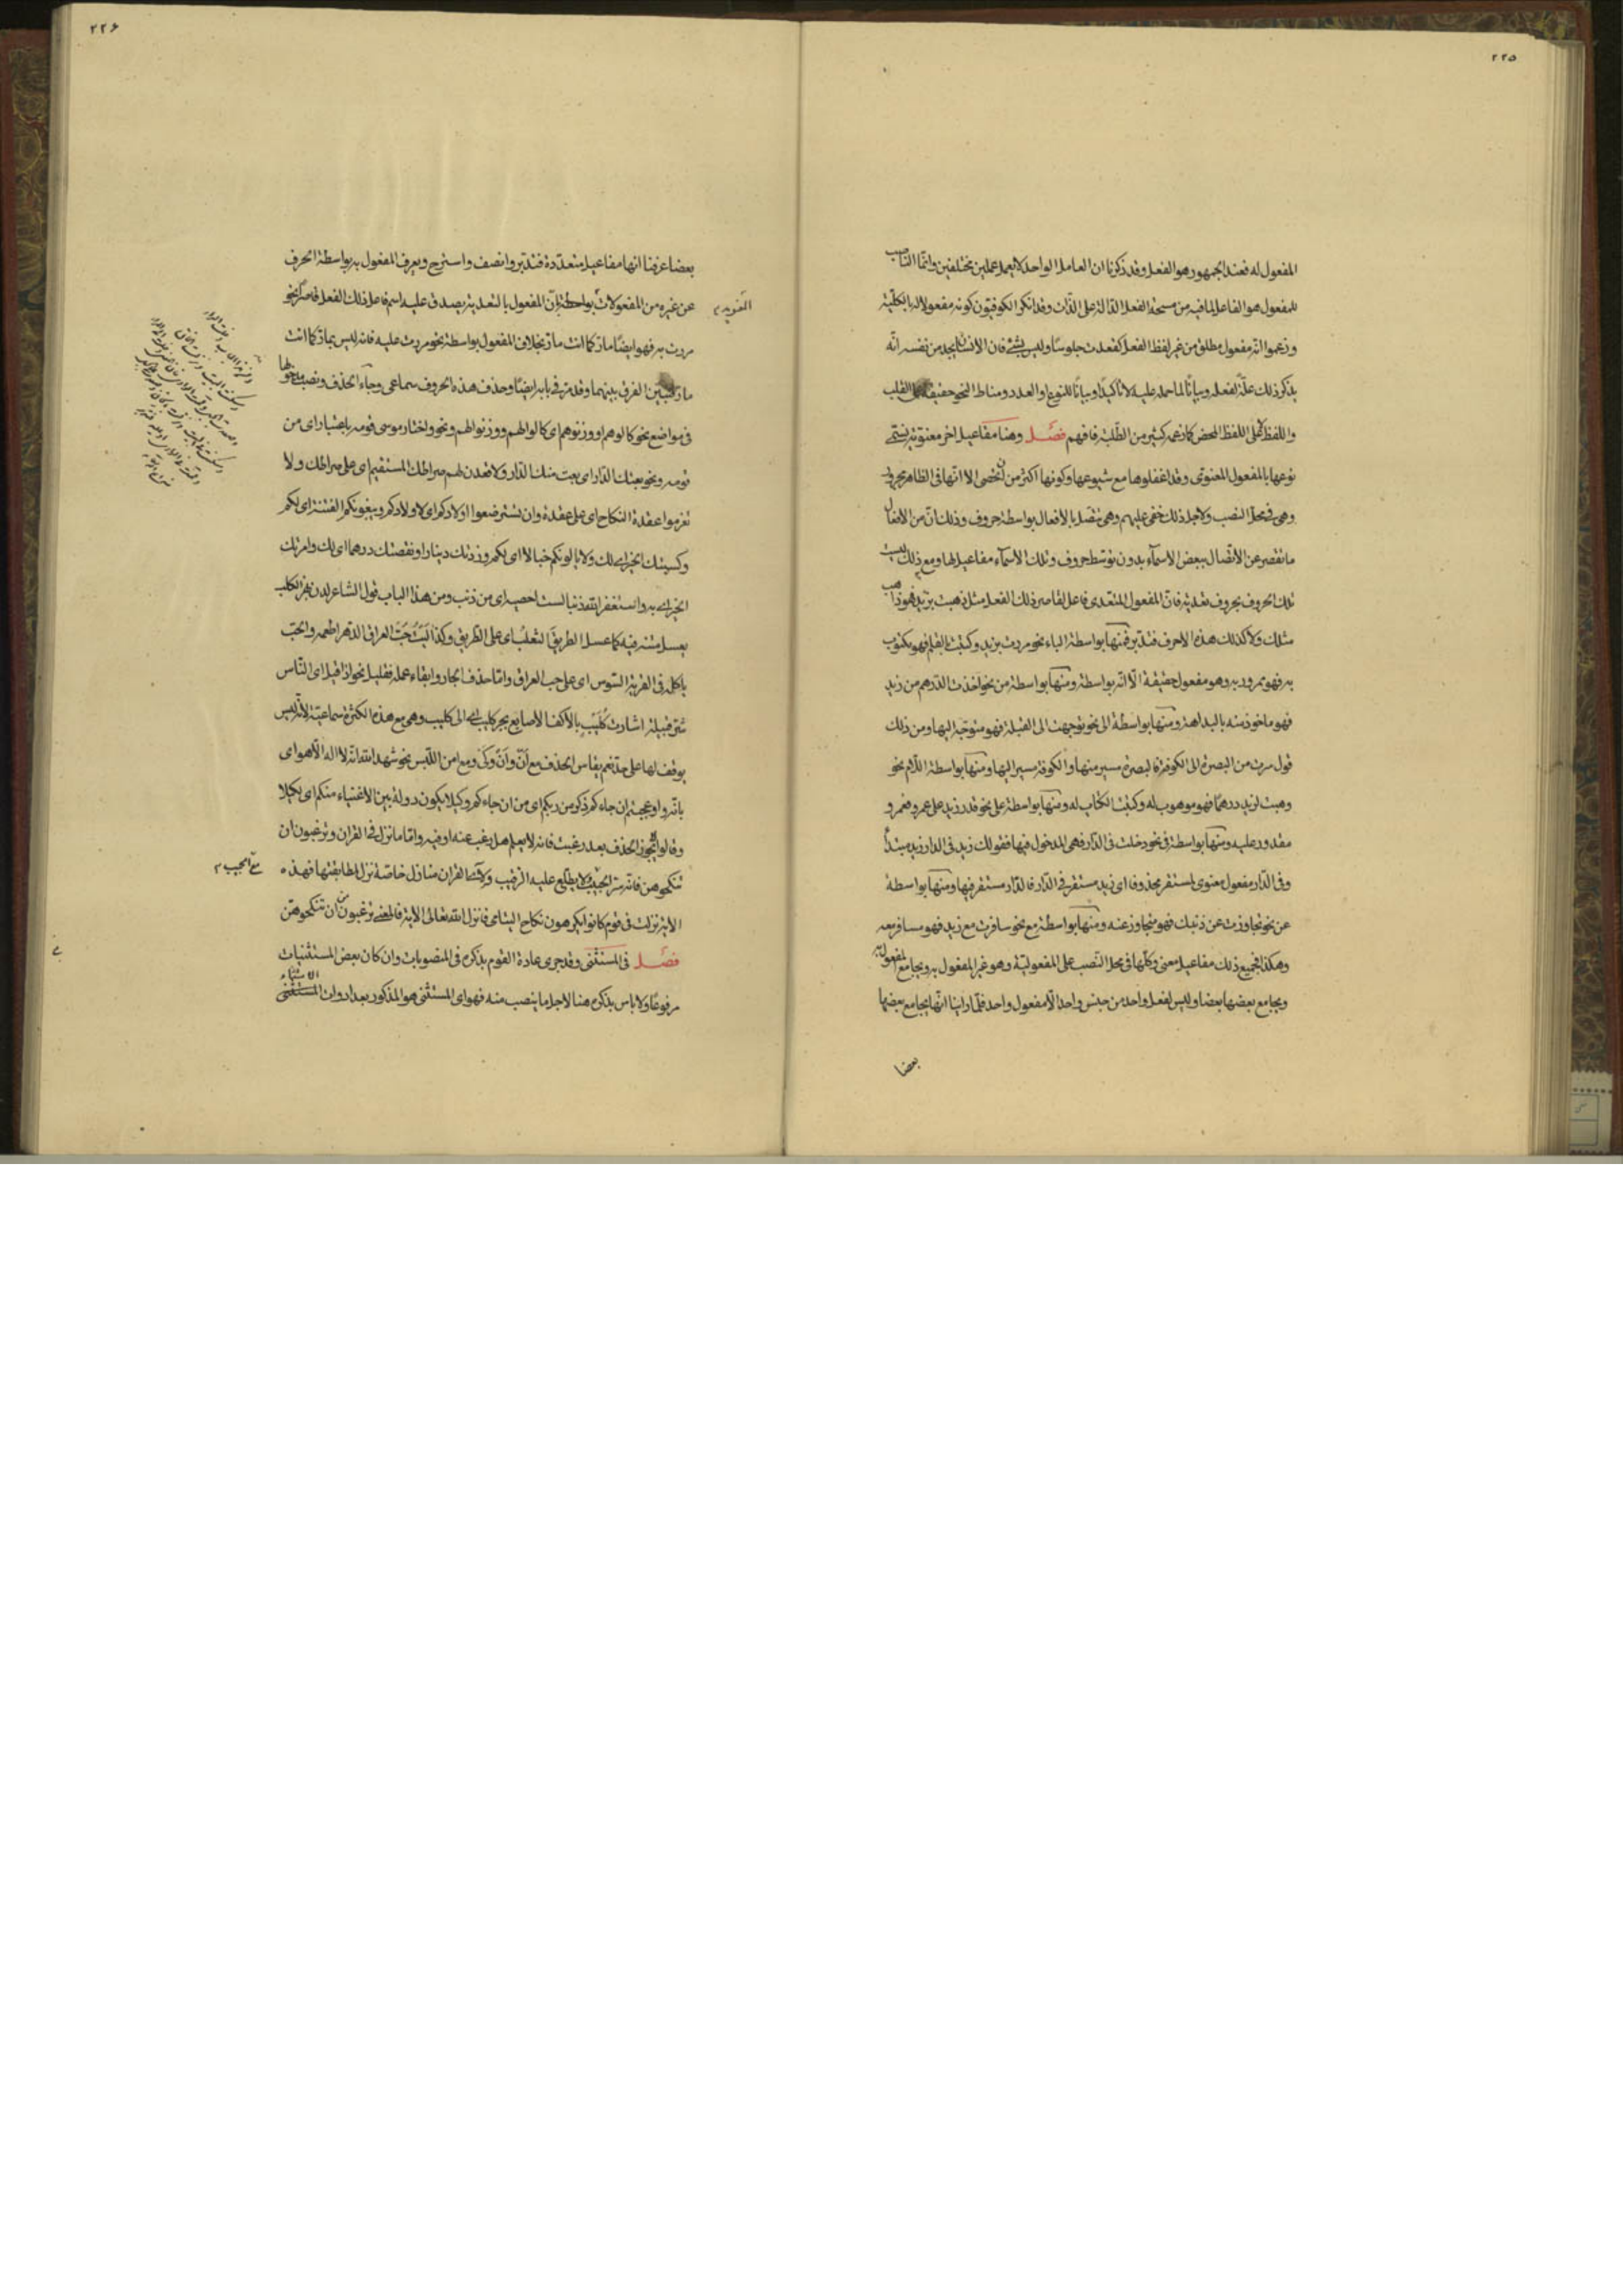 ٢٢٥
المفعول له فعند الجمهور هو الفعل وقد ذكرنا ان العامل الواحد لا يعمل عملين مختلفين وانما الناصب
للمفعول هو الفاعل لما فيه من مسحة الفعل الدالة على الذات وقد انكر الكوفيون كونه مفعولا له بالكلية
وزعموا انه مفعول مطلق من غير لفظ الفعل كقعدت جلوسا وليس بشئ فان الانسان يجد من نفسه انه
يذكر ذلك علة لفعله وبيانا لما حمله عليه لا تأكيدا وبيانا للنوع او العدد ومناط النحو حقيقة القلب
واللفظ لا على اللفظ المحض كما زعمه كثير من الطلبة فافهم فصل وهنا مفاعيل اخر معنوية يسمى
نوعها بالمفعول المعنوى وقد اغفلوها مع شيوعها وكونها اكثر من ان تحصى الا انها فى الظاهر مجرورة
وهى فى محل النصب ولاجل ذلك خفى عليهم وهى تتصل بالافعال بواسطة حروف وذلك ان من الافعال
ما تقصر عن الاتصال ببعض الاسماء بدون توسط حروف وتلك الاسماء مفاعيل لها ومع ذلك ليست
تلك الحروف بحروف تعدية فان المفعول المتعدى فاعل لقاصر ذلك الفعل مثل ذهبت بزيد فهو ذاهب
مثلك ولا كذلك هذه الاحرف فتدبر فمنها بواسطة الباء نحو مررت بزيد وكتبت بالقلم فهو مكتوب
به فهو ممرور به وهو مفعول حقيقة الا انه بواسطة ومنها بواسطة من نحو اخذت الدرهم من زيد
فهو ماخوذ منه بالبداهة ومنها بواسطة الى نحو توجهت الى القبلة فهو متوجه اليها ومن ذلك
قول سرت من البصرة الى الكوفة فالبصرة مسير منها والكوفة مسير اليها ومنها بواسطة اللام نحو
وهبت لزيد درهما فهو موهوب له وكتبت الكتاب له ومنها بواسطة على نحو قدر زيد على عمرو فعمرو
مقدور عليه ومنها بواسطة فى نحو دخلت فى الدار فهى المدخول فيها فقولك زيد فى الدار زيد مبتدأ
وفى الدار مفعول معنوى لمستقر محذوفا اى زيد مستقر فى الدار فالدار مستقر فيها ومنها بواسطة
عن نحو تجاوزت عن ذنبك فهو متجاوز عنه ومنها بواسطة مع نحو سافرت مع زيد فهو مسافر معه
وهكذا فجميع ذلك مفاعيل معنى وكلها فى محل النصب على المفعولية وهو غير المفعول به ويجامع المفعول به
ويجامع بعضها بعضا وليس لفعل واحد من جنس واحد الا مفعول واحد فلما راينا انها يجامع بعضها
بعضا
٢٢٦
بعضا عرفنا انها مفاعيل متعددة فتدبر وانصف واسترح ويعرف المفعول به بواسطة الحرف
عن غيره من المفعولات بواسطة بان المفعول بالتعدية يصدق عليه اسم فاعل ذلك الفعل قاصرا نحو
مررت به فهو ايضا مار كما انت مار بخلاف المفعول بواسطة نحو مررت عليه فانه ليس بمار كما انت
مار فتبين الفرق بينهما وقد مر فى بابه ايضا وحذف هذه الحروف سماعى وجاء الحذف ونصب مدخولها
فى مواضع نحو كالوهم او وزنوهم اى كالوا لهم ووزنوا لهم ونحو واختار موسى قومه باعتبار اى من
قومه ونحو بعتك الدار اى بعت منك الدار ولاقعدن لهم صراطك المستقيم اى على صراطك ولا
تعزموا عقدة النكاح اى على عقدة وان تسترضعوا اولادكم اى لاولادكم ويبغونكم الفتنة اى لكم
وكسبتك الخير اى لك ولا يالونكم خبالا اى لكم وزدتك دينارا ونقصتك درهما اى لك وامرتك
الخير اى به واستغفر الله ذنبا لست احصيه اى من ذنب ومن هذا الباب قول الشاعر لدن بهز الكف
يعسل متنه فيه كما عسل الطريق الثعلب اى على الطريق وكذا اليت حب العراق الدهر اطعمه والحب
ياكله فى القرية السوس اى على حب العراق واما حذف الجار وابقاء عمله فقليل نحو اذا قيل اى الناس
شر قبيلة اشارت كليب بالاكف الاصابع بجر كليب اى الى كليب وهى مع هذه الكثرة سماعية لانه ليس
يوقف لها على حد نعم يقاس الحذف مع ان وان وكى ومع امن اللبس نحو شهد الله انه لا اله الا هو اى
بانه واوعجبتم ان جاءكم ذكر من ربكم اى من ان جاءكم وكيلا يكون دولة بين الاغنياء منكم اى لكيلا
وقالوا لا يجوز الحذف بعد رغبت فانه لا يعلم هل رغب عنه او فيه واما ما نزل فى القران وترغبون ان
تنكحوهن فانه سر الحبيب ولا يطلع عليه الرقيب ولآيات القران منازل خاصة نزل لمطابقتها فهذه
الاية نزلت فى قوم كانوا يكرهون نكاح اليتامى فانزل الله تعالى الاية فالمعنى ترغبون عن ان تنكحوهن
فصل فى المستثنى وقد جرى عادة القوم بذكره فى المنصوبات وان كان بعض المستثنيات
مرفوعا ولا باس بذكره هنا لاجل ما ينصب منه فهو اى المستثنى هو المذكور بعد ادوات الاستثناء المستثنى
التعدية م
مع الحبيب م